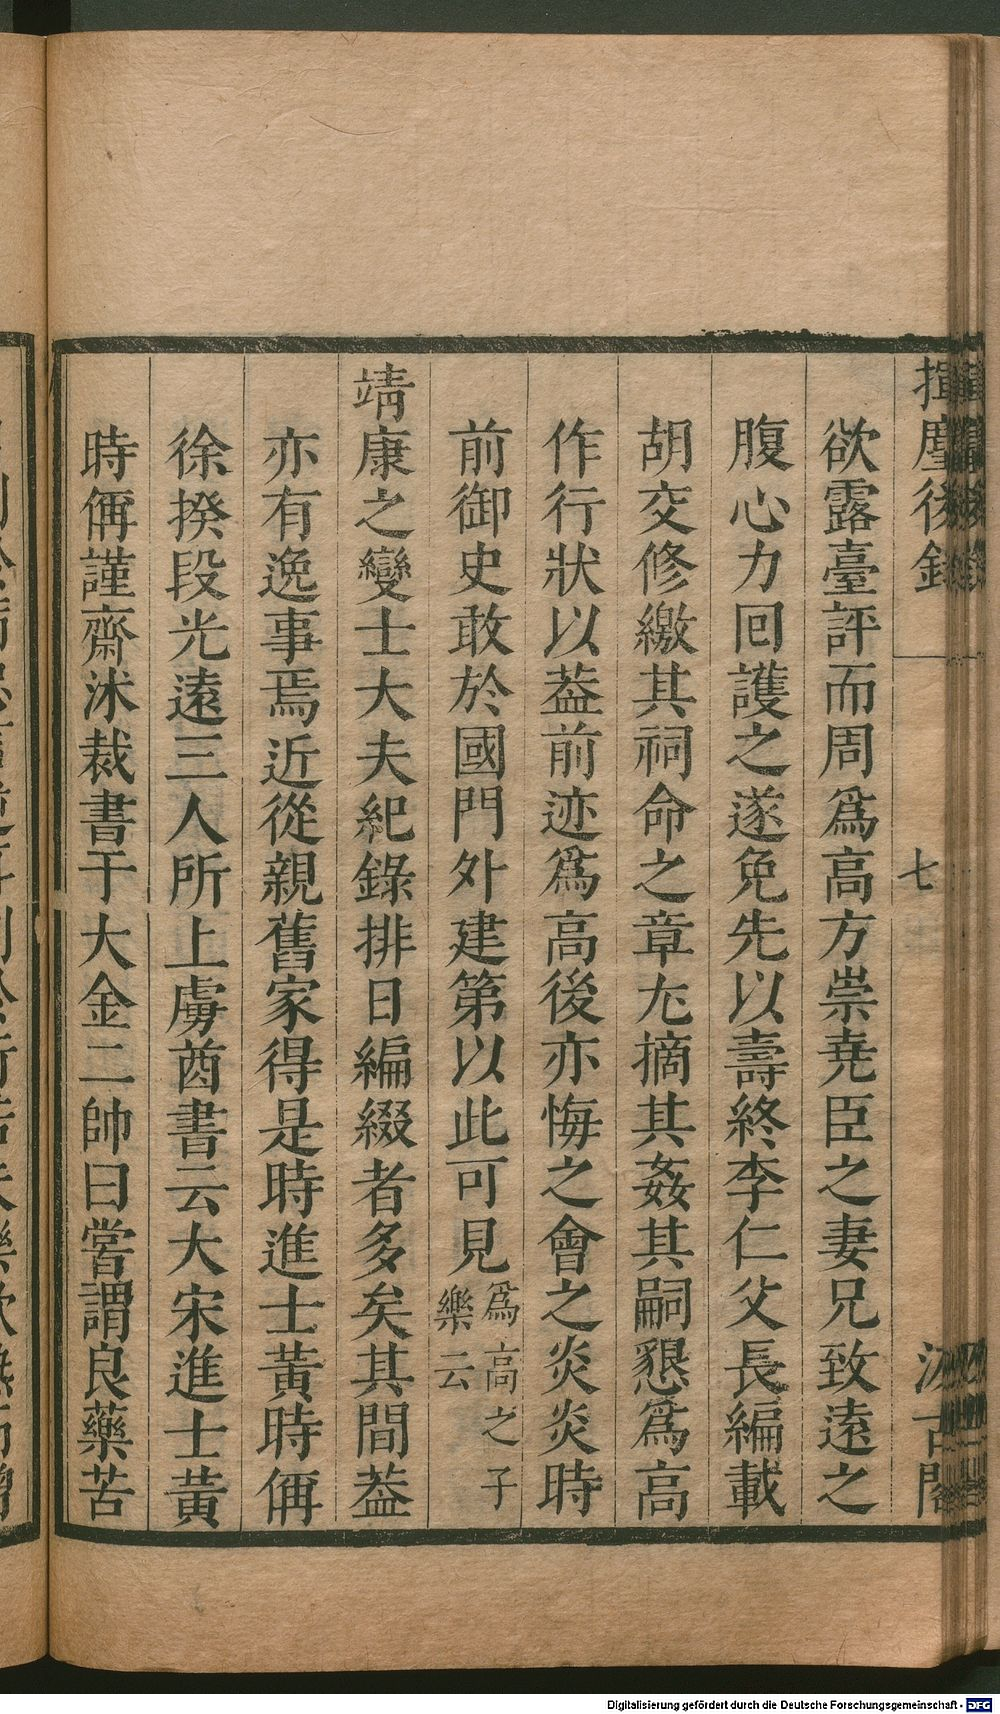 揮麈後錄
七
汲古閣
欲露臺評而周爲高方崇堯臣之妻兄致遠之
腹心力回護之遂免先以壽終李仁父長編載
胡交修繳其祠命之章尤摘其姦其嗣懇爲高
作行狀以葢前迹爲高後亦悔之會之炎炎時
前御史敢於國門外建第以此可見爲高之子
樂云
靖康之變士大夫紀錄排日編綴者多矣其間葢
亦有逸事焉近從親舊家得是時進士黃時偁
徐揆段光遠三人所上虜酋書云大宋進士黃
時偁謹齋沐裁書于大金二帥曰嘗謂良藥苦
Digitalisierung gefördert durch die Deutsche Forschungsgemeinschaft - DFG